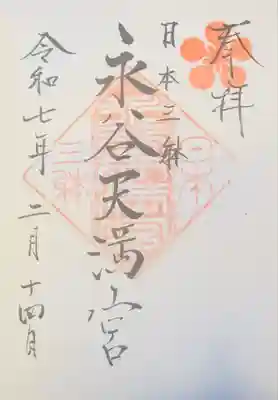 奉拝
日本三躰
永谷天満宮
令和七年二月十四日